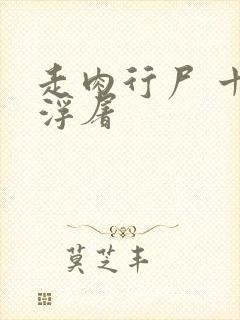 走肉行尸 十
浮屠
莫芝丰